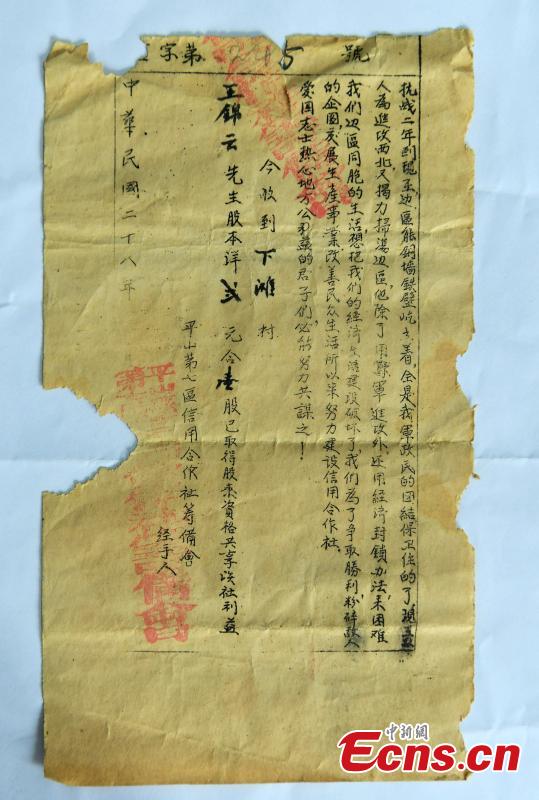 字第 245 號
抗战二年到现在边区能銅墙鉄壁屹立着,全是我軍政民的团結保卫住的了现在敌
人為進攻西北又揭力掃蕩边區他除了用敵軍進攻外,还用經済封鎖办法来困难
我们边區同胞的生活想把我们的経済生活建设破坏了,我们為了争取勝利粉碎敌人
的企图,发展生產事業改善民众生活所以来努力建设信用合作社,
爱国志士热心地方公益的君子们必能努力共謀之!
今收到下滩村
王錦云先生股本洋弍元合壹股已取得股東資格共享該社利益
平山第七區信用合作社筹備會
经手人
中華民國二十八年
中新網
Ecns.cn